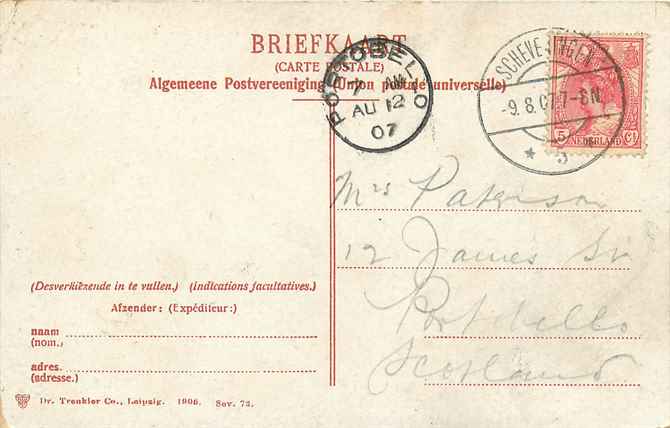 BRIEFKAART
(CARTE POSTALE)
Algemeene Postvereeniging (Union postale universelle)
PORTOBELLO
7 AM
AU 12
07
SCHEVENINGEN
-9.8.07.7-8N
5 NEDERLAND Ct
Mrs Paterson
12 James St
Portobello
Scotland
(Desverkiezende in te vullen.) (indications facultatives.)
Afzender: (Expéditeur:)
naam
(nom.,
adres.
(adresse.)
Dr. Trenkler Co., Leipzig. 1906. Sev. 72.